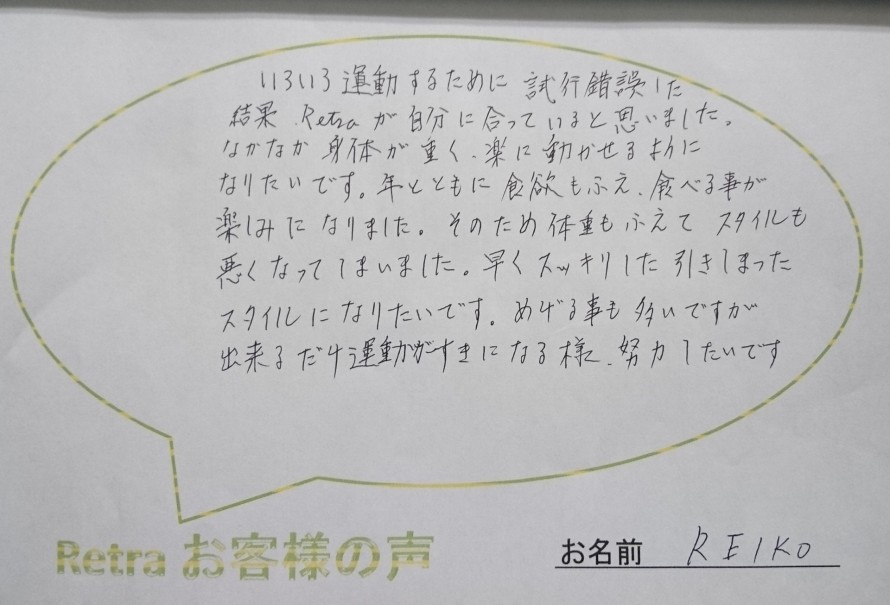 いろいろ運動するために 試行錯誤した
結果、Retraが自分に合っていると思いました。
なかなか身体が重く、楽に動かせる様に
なりたいです。年とともに食欲もふえ、食べる事が
楽しみになりました。そのため体重もふえてスタイルも
悪くなってしまいました。早くスッキリした引きしまった
スタイルになりたいです。めげる事も多いですが
出来るだけ運動がすきになる様、努力したいです
Retra お客様の声
お名前 REIKO